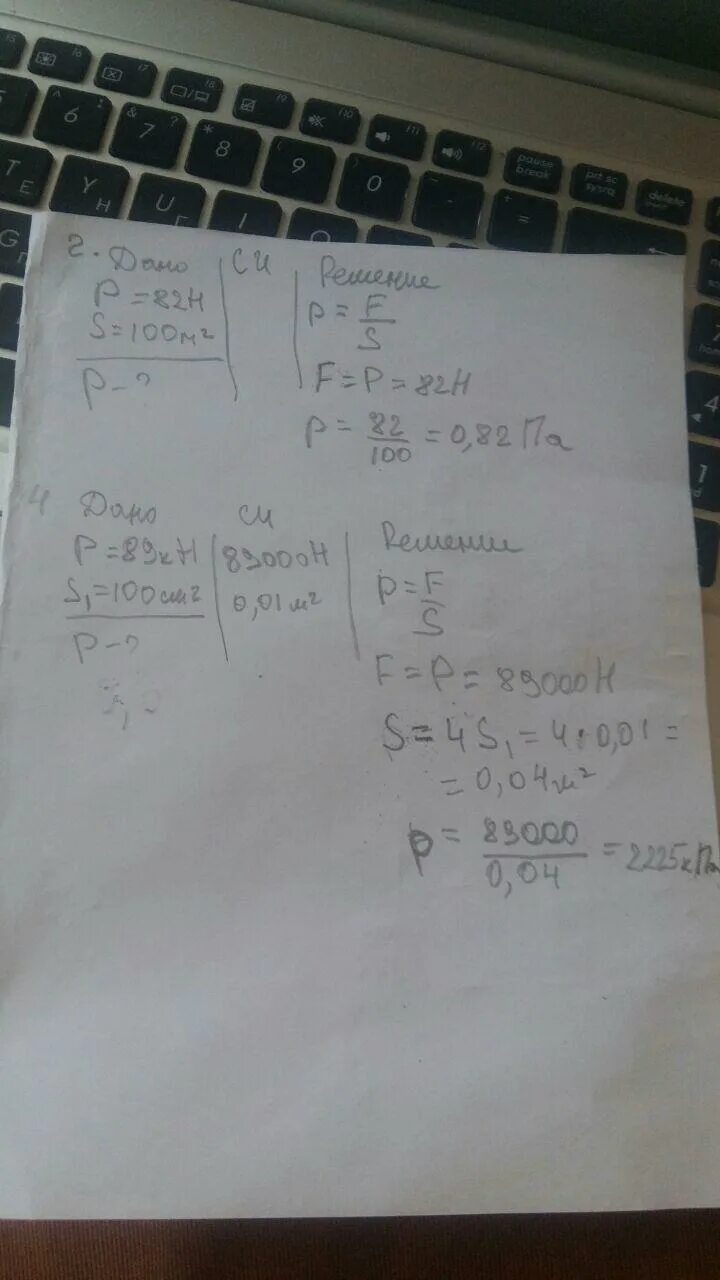 f5 f6 f7 f8 f9 f10 f11 f12 pause break prt sc sysrq delete
^ 6 : & 7 ? * 8 ( 9 ) 0 - + =
T Е Y Н U Г I O
G П
2. Дано СИ Решение
P = 82Н
S = 100м²
P - ?
p = F/S
F = P = 82Н
p = 82/100 = 0,82 Па
4 Дано СИ Решение
P = 89кН 89000Н
S₁ = 100см² 0,01 м²
P - ?
p = F/S
F = P = 89000Н
S = 4 S₁ = 4 · 0,01 =
= 0,04 м²
p = 89000/0,04 = 2225кПа